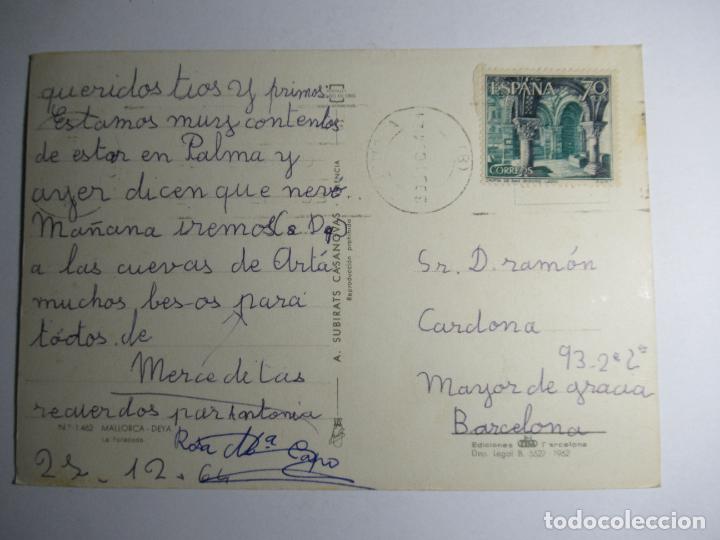 queridos tios y primos:
Estamos muy contentos
de estar en Palma y
ayer dicen que nevó.
Mañana iremos
a las cuevas de Artá
muchos bes-os para
todos de
Merceditas
recuerdos para Antonia
Rosa Mª Capo
12. 64
Nº 1.462 MALLORCA - DEYA
La Foradada
A. SUBIRATS CASANOVAS - VALENCIA
Reproducción prohibida
ESPAÑA 70
CORREOS
Sr. D. ramón
Cardona
93-2º 2ª
Mayor de gracia
Barcelona
Ediciones Barcelona
Dep. Legal B. 5527-1962
todocoleccion.net